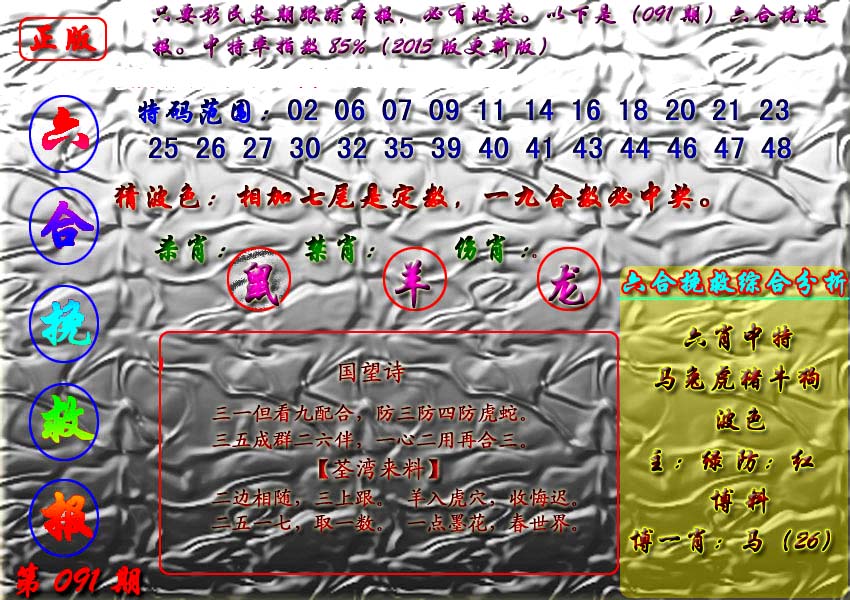 正版
只要彩民长期跟踪本报，必有收获。以下是（091期）六合挽救
报。中特率指数85%（2015版更新版）
六合挽救报
第091期
特码范围：02 06 07 09 11 14 16 18 20 21 23
25 26 27 30 32 35 39 40 41 43 44 46 47 48
猜波色：相加七尾是定数，一九合数必中奖。
杀肖：鼠 禁肖：羊 伤肖：龙
国望诗
三一但看九配合，防三防四防虎蛇。
三五成群二六伴，一心二用再合三。
【荃湾来料】
二边相随，三上跟。 羊入虎穴，收悔迟。
二五一七，取一数。 一点墨花，春世界。
六合挽救综合分析
六肖中特
马兔虎猪牛狗
波色
主：绿防：红
博料
博一肖：马（26）